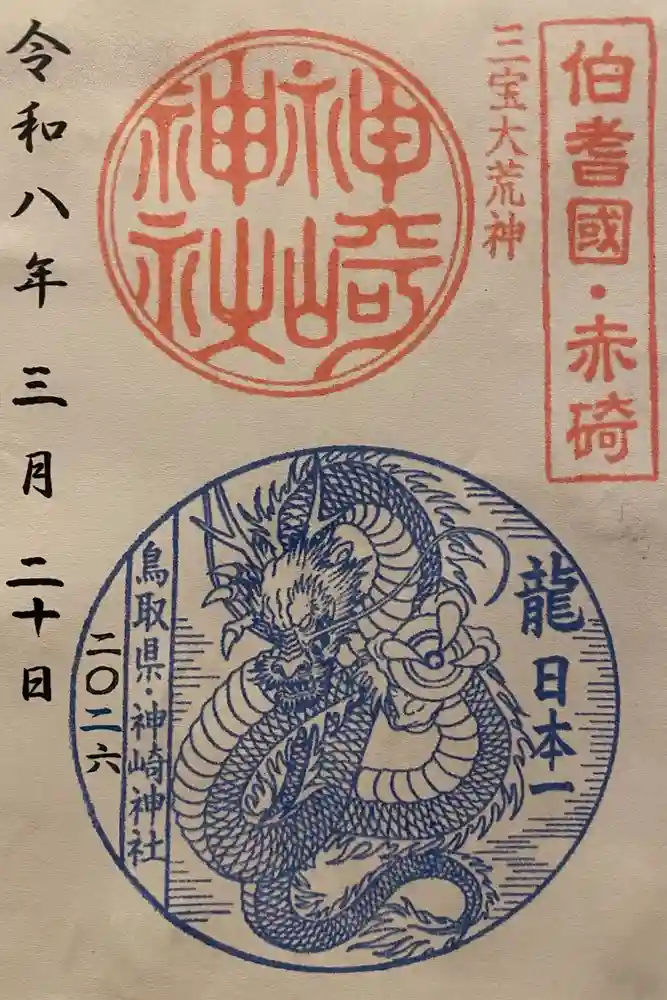 伯耆國・赤碕
三宝大荒神
神崎
神社
令和八年 三月 二十日
龍 日本一
鳥取県・神崎神社
二〇二六